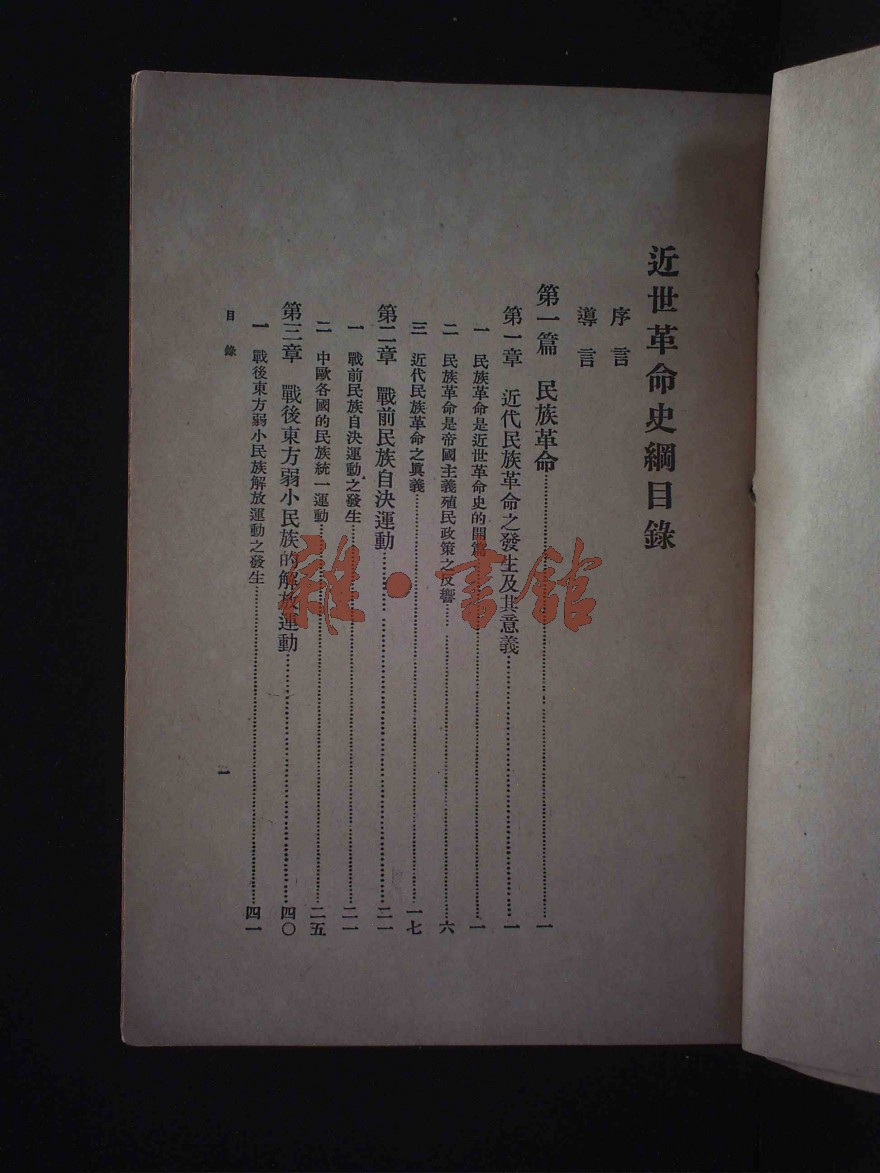 近世革命史綱目錄
序言
導言
第一篇 民族革命……一
第一章 近代民族革命之發生及其意義……一
一 民族革命是近世革命史的開篇……一
二 民族革命是帝國主義殖民政策之反響……六
三 近代民族革命之眞義……一七
第二章 戰前民族自決運動……二一
一 戰前民族自決運動之發生……二一
二 中歐各國的民族統一運動……二五
第三章 戰後東方弱小民族的解放運動……四〇
一 戰後東方弱小民族解放運動之發生……四一
目錄
一
雜·書館